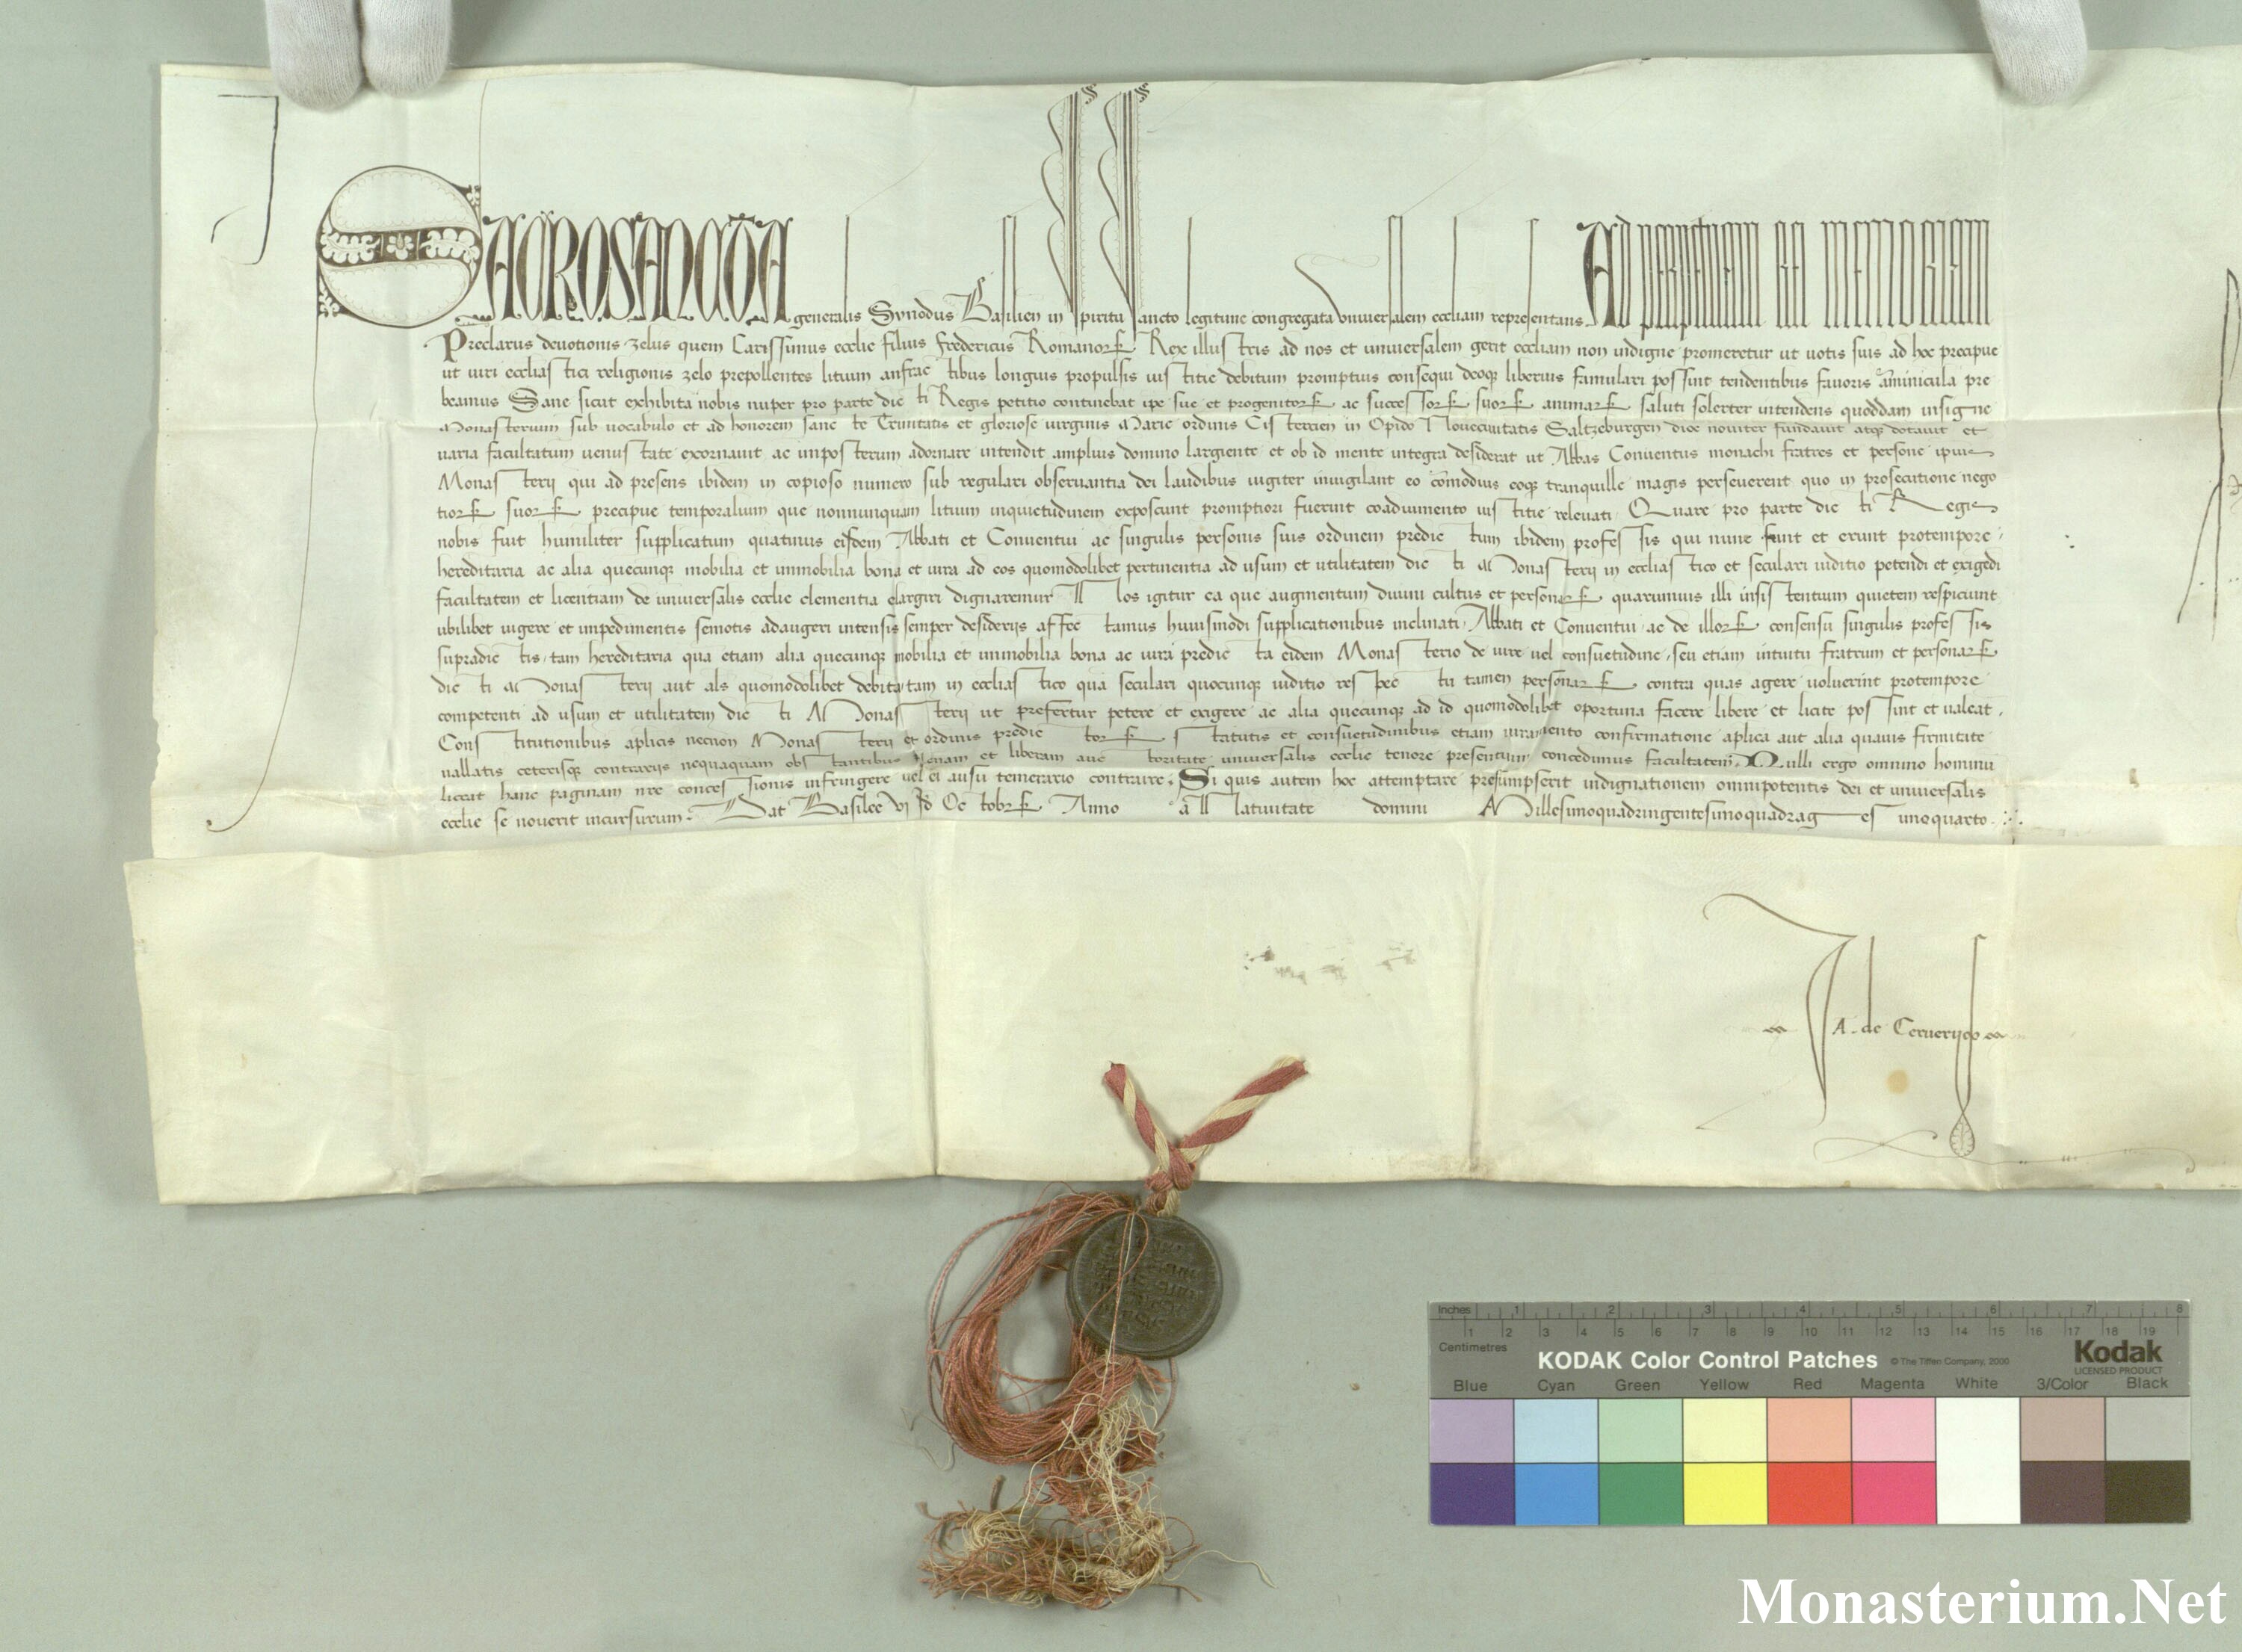 SACROSANCTA generalis Synodus Basilien in spiritu sancto legitime congregata vniuersalem eccliam representans Ad perpetuam rei memoriam
Preclarus deuotionis zelus quem Carissimus ecclie filius Fredericus Romanorꝝ Rex illustris ad nos et vniuersalem gerit eccliam non indigne promeretur ut uotis suis ad hoc precipue
ut uiri ecclastici religionis zelo prepollentes litium anfractibus longius propulsis iustitie debitum promptius consequi deoqꝫ liberius famulari possint tendentibus fauoris aminicula pre
beamus Sane sicut exhibita nobis nuper pro parte dicti Regis petitio continebat ipe sue et progenitorꝝ ac successorꝝ suorꝝ animarꝝ saluti solerter intendens quoddam insigne
Monasterium sub uocabulo et ad honorem sancte Trinitatis et gloriose uirginis Marie ordinis Cistercien in Opido Nouecivitatis Saltzeburgen dioc nouiter fundauit atqꝫ dotauit et
uaria facultatum uenustate exornauit ac imposterum adornare intendit amplius domino largiente et ob id mente integra desiderat ut Abbas Conuentus monachi fratres et persone ipius
Monasterij qui ad presens ibidem in copioso numero sub regulari obseruantia dei laudibus iugiter inuigilant eo comodius eoqꝫ tranquille magis perseuerent quo in prosecutione nego
tiorꝝ suorꝝ precipue temporalium que nonnunquam litium inquietudinem exposcunt promptiori fuerint coadiumento iustitie releuati Quare pro parte dicti Regis
nobis fuit humiliter supplicatum quatinus eisdem Abbati et Conuentui ac singulis personis suis ordinem predictum ibidem professis qui nunc sunt et erunt protempore
hereditaria ac alia quecunqꝫ mobilia et immobilia bona et iura ad eos quomodolibet pertinentia ad usum et utilitatem dicti Monasterij in ecclastico et seculari iuditio petendi et exigedi
facultatem et licentiam de uniuersalis ecclie clementia elargiri dignaremur Nos igitur ea que augmentum diuini cultus et personarꝝ quarumuis illi insistentium quietem respiciunt
ubilibet uigere et impedimentis semotis adaugeri intensis semper desiderijs affectamus huiusmodi supplicationibus inclinati Abbati et Conuentui ac de illorꝝ consensu singulis professis
supradictis tam hereditaria qua etiam alia quecunqꝫ mobilia et immobilia bona ac iura predicta eidem Monasterio de iure uel consuetudine seu etiam intuitu fratrum et personarꝝ
dicti Monasterij aut als quomodolibet debita tam in ecclastico qua seculari quocunqꝫ iuditio respectu tamen personarꝝ contra quas agere uoluerint protempore
competenti ad usum et utilitatem dicti Monasterij ut prefertur petere et exigere ac alia quecunqꝫ ad id quomodolibet oportuna facere libere et licite possint et ualeat
Constitutionibus aplicis necnon Monasterij et ordinis predictorꝝ statutis et consuetudinibus etiam iuramento confirmatione aplica aut alia quauis firmitate
uallatis ceterisqꝫ contrarijs nequaquam obstantibus plenam et liberam auctoritate uniuersalis ecclie tenore presentium concedimus facultatem Nulli ergo omnino hominu
liceat hanc paginam nre concessionis infringere uel ei ausu temerario contraire. Si quis autem hoc attemptare presumpserit indignationem omnipotentis dei et uniuersalis
ecclie se nouerit incursurum. Dat Basilee vj Id Octobrꝝ Anno a Natiuitate domini Millesimoquadringentesimoquadragesimoquarto
Ja. de Ceruerijs
Inches 1 2 3 4 5 6 7 8
1 2 3 4 5 6 7 8 9 10 11 12 13 14 15 16 17 18 19
Centimetres
KODAK Color Control Patches © The Tiffen Company, 2000 Kodak
LICENSED PRODUCT
Blue Cyan Green Yellow Red Magenta White 3/Color Black
Monasterium.Net